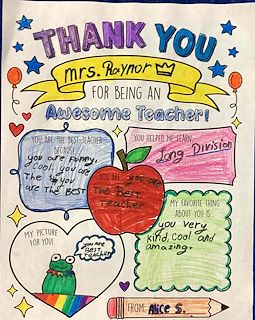 THANK YOU
mrs. Raynor
FOR BEING AN
Awesome Teacher!
YOU ARE THE BEST TEACHER
BECAUSE...
you are funny,
cool, you are
The
you
are The BEST
YOU HELPED ME LEARN...
Long Division
YOU ARE you are
The Best
Teacher
MY FAVORITE THING
ABOUT YOU IS...
you very
kind, cool and
amazing.
MY PICTURE
FOR YOU!
you are
BEST
TEACHER
FROM: Alice S.